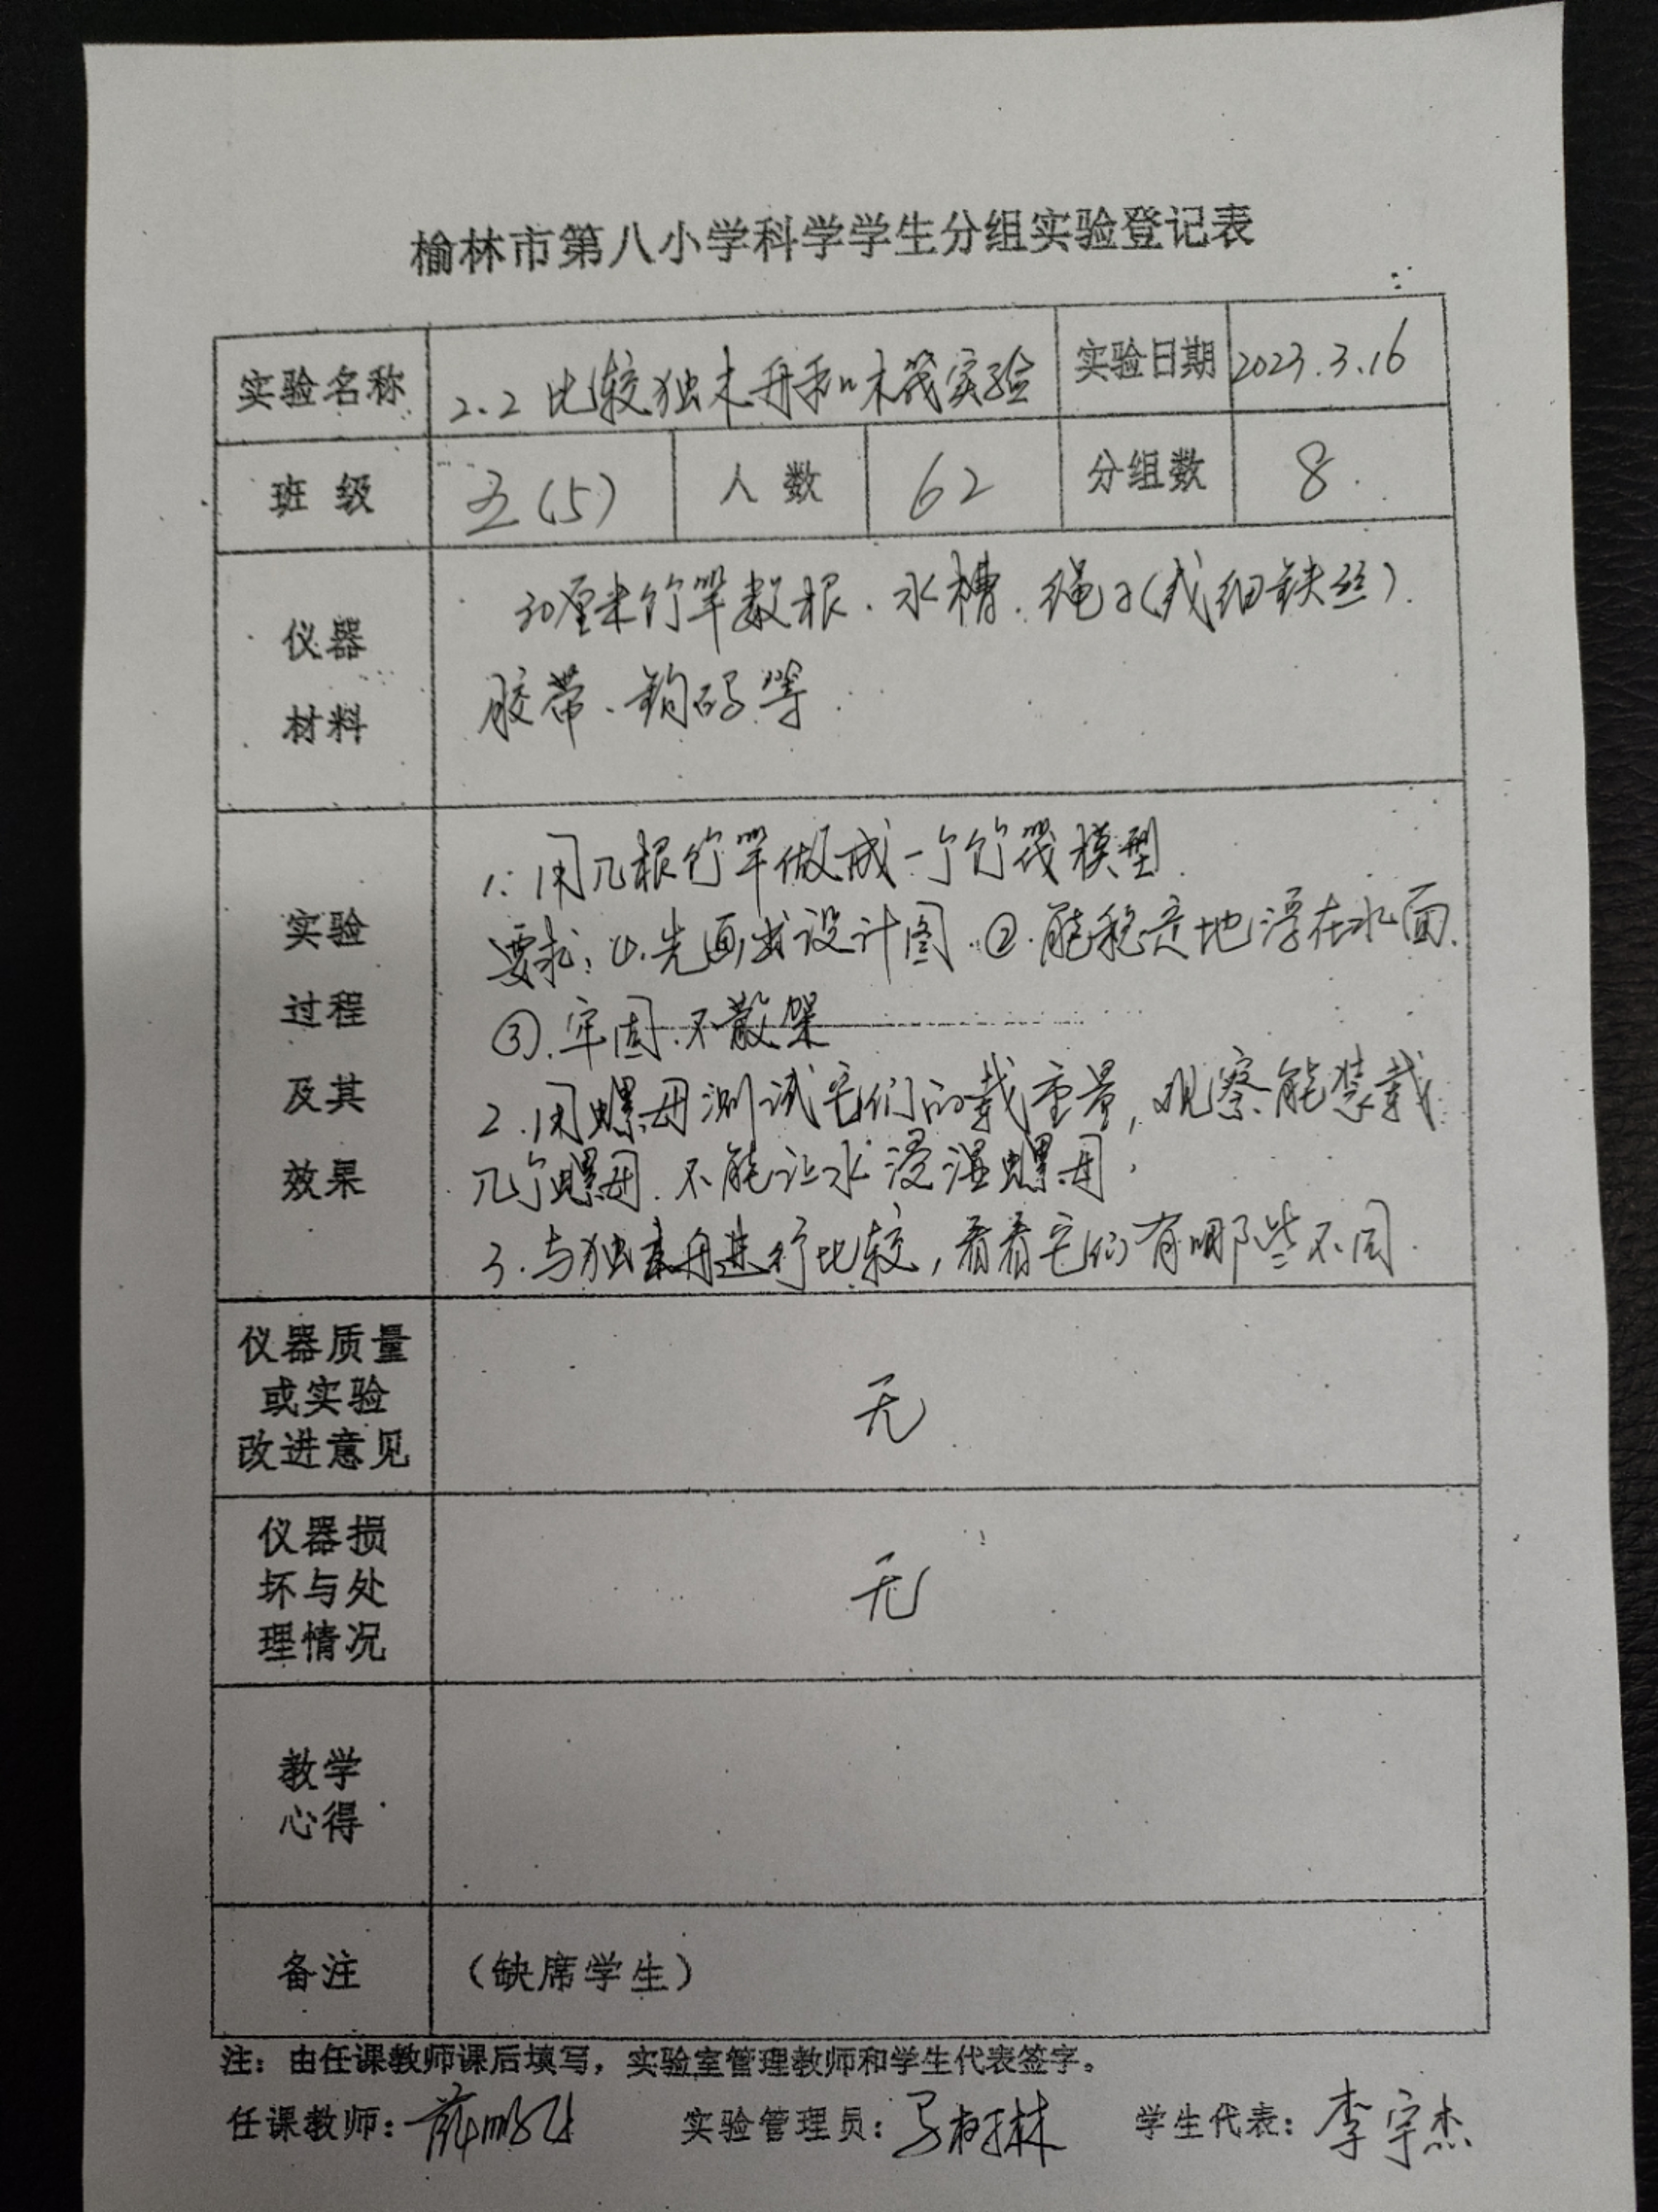 榆林市第八小学科学学生分组实验登记表
实验名称 2.2 比较独木舟和木筏实验 实验日期 2023.3.16
班级 五(5) 人数 62 分组数 8
仪器
材料
30厘米竹竿数根、水槽、绳子(或细铁丝)、
胶带、钩码等
实验
过程
及其
效果
1. 用几根竹竿做成一个竹筏模型.
要求: ①.先画出设计图.②.能稳定地浮在水面.
③.牢固.不散架
2.用螺母测试它们的载重量,观察能装载
几个螺母.不能让水浸湿螺母.
3.与独木舟进行比较,看看它们有哪些不同.
仪器质量
或实验
改进意见
无
仪器损
坏与处
理情况
无
教学
心得
备注 (缺席学生)
注：由任课教师课后填写，实验室管理教师和学生代表签字。
任课教师： 实验管理员： 学生代表：李宇杰